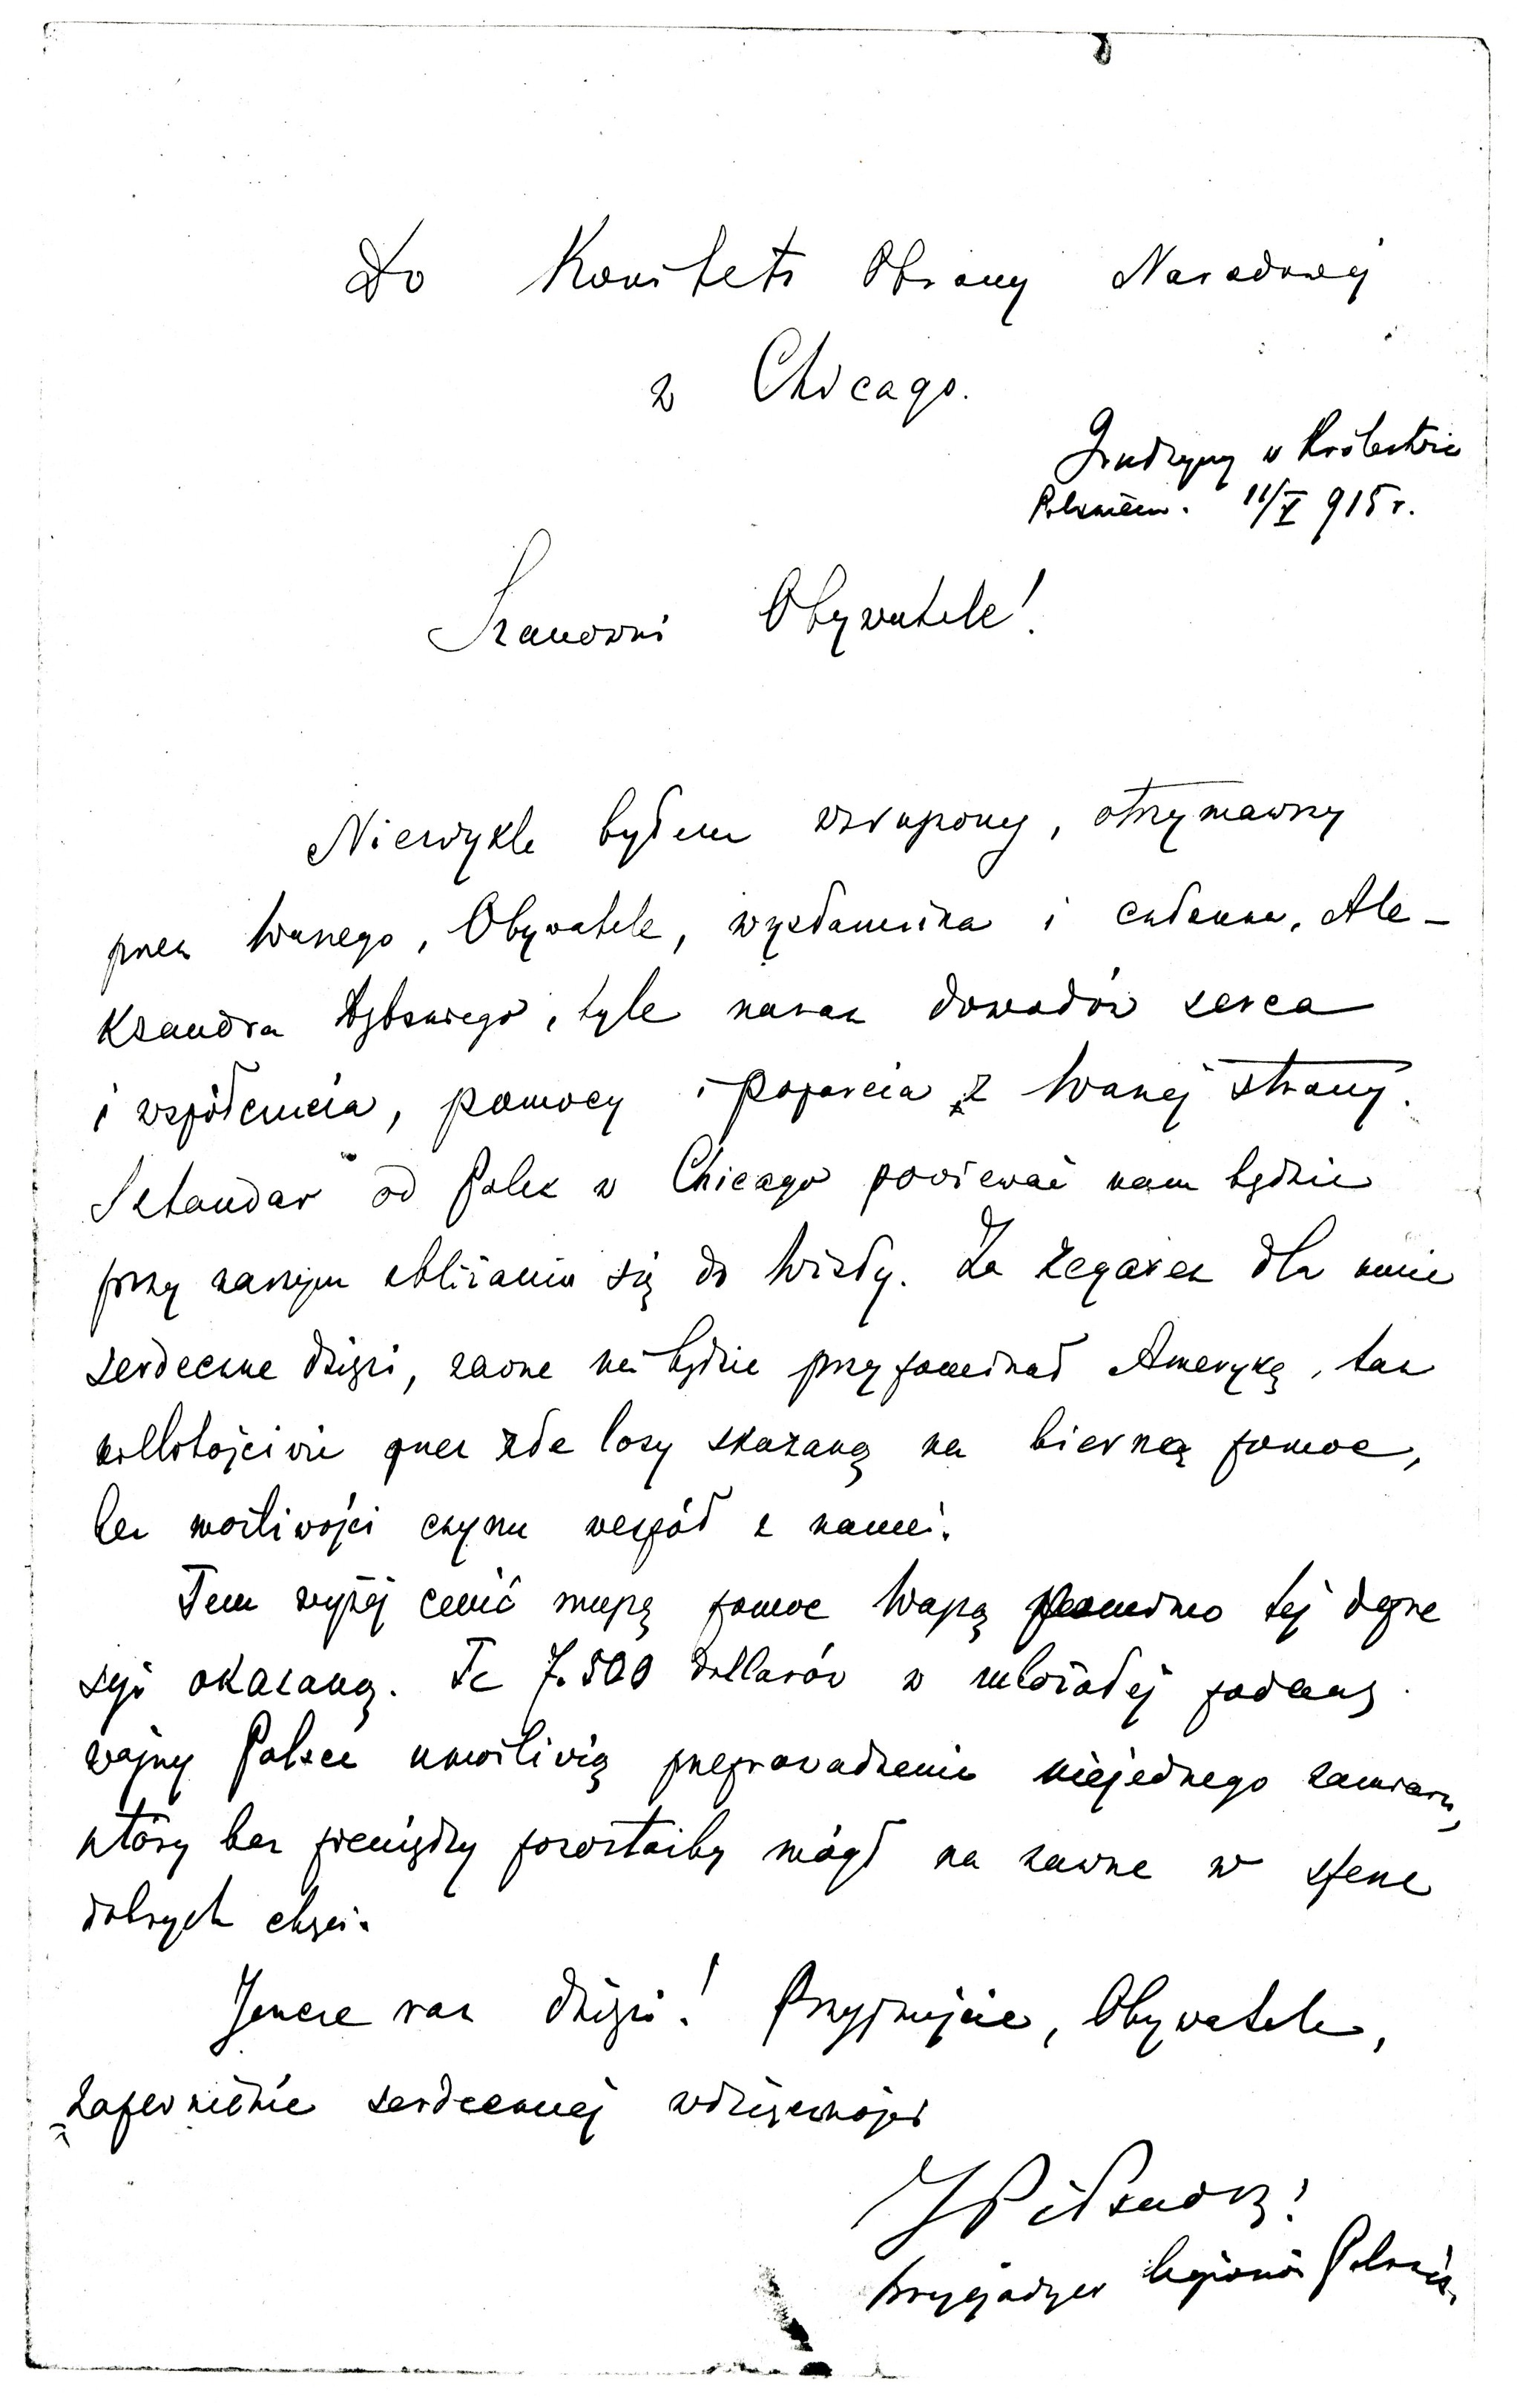 Do Komitetu Obrony Narodowej
w Chicago.
Grudzyny w Królestwie
Polskiem. 11/V 915 r.
Szanowni Obywatele!
Niezwykle byłem wzruszony, otrzymawszy
przez Waszego, Obywatele, wysłannika i członka, Ale-
ksandra Dębskiego, tyle naraz dowodów serca
i współczucia, pomocy i poparcia z Waszej strony.
Sztandar od Polek w Chicago powiewać nam będzie
przy naszym zbliżaniu się do Wisły. Za zegarek dla mnie
serdeczne dzięki, zawsze mi będzie przypominał Amerykę, tak
nielitościwie przez złe losy skazaną na bierną pomoc,
bez możliwości czynu wespół z nami.
Tem wyżej cenić muszę pomoc Waszą pomimo tej depre
sji okazaną. Te 7.500 dollarów w zubożałej podczas
wojny Polsce umożliwią przeprowadzenie niejednego zamiaru,
który bez pieniędzy pozostałby mógł na zawsze w sferze
dobrych chęci.
Jeszcze raz dzięki! Przyjmijcie, Obywatele,
zapewnienie serdecznej wdzięczności
J Piłsudski
brygadyer legionów Polskich